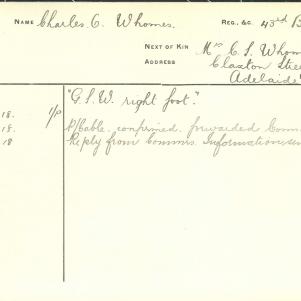 NAME Charles. C. Whomes. REG., &C. 43rd B
NEXT OF KIN Mrs C. S. Whom
ADDRESS Claxton Stree
Adelaide
"G.S.W. right foot."
18. 1/P
18. P/Cable. confirmed. forwarded Comm
18 Reply from Commrs. Information